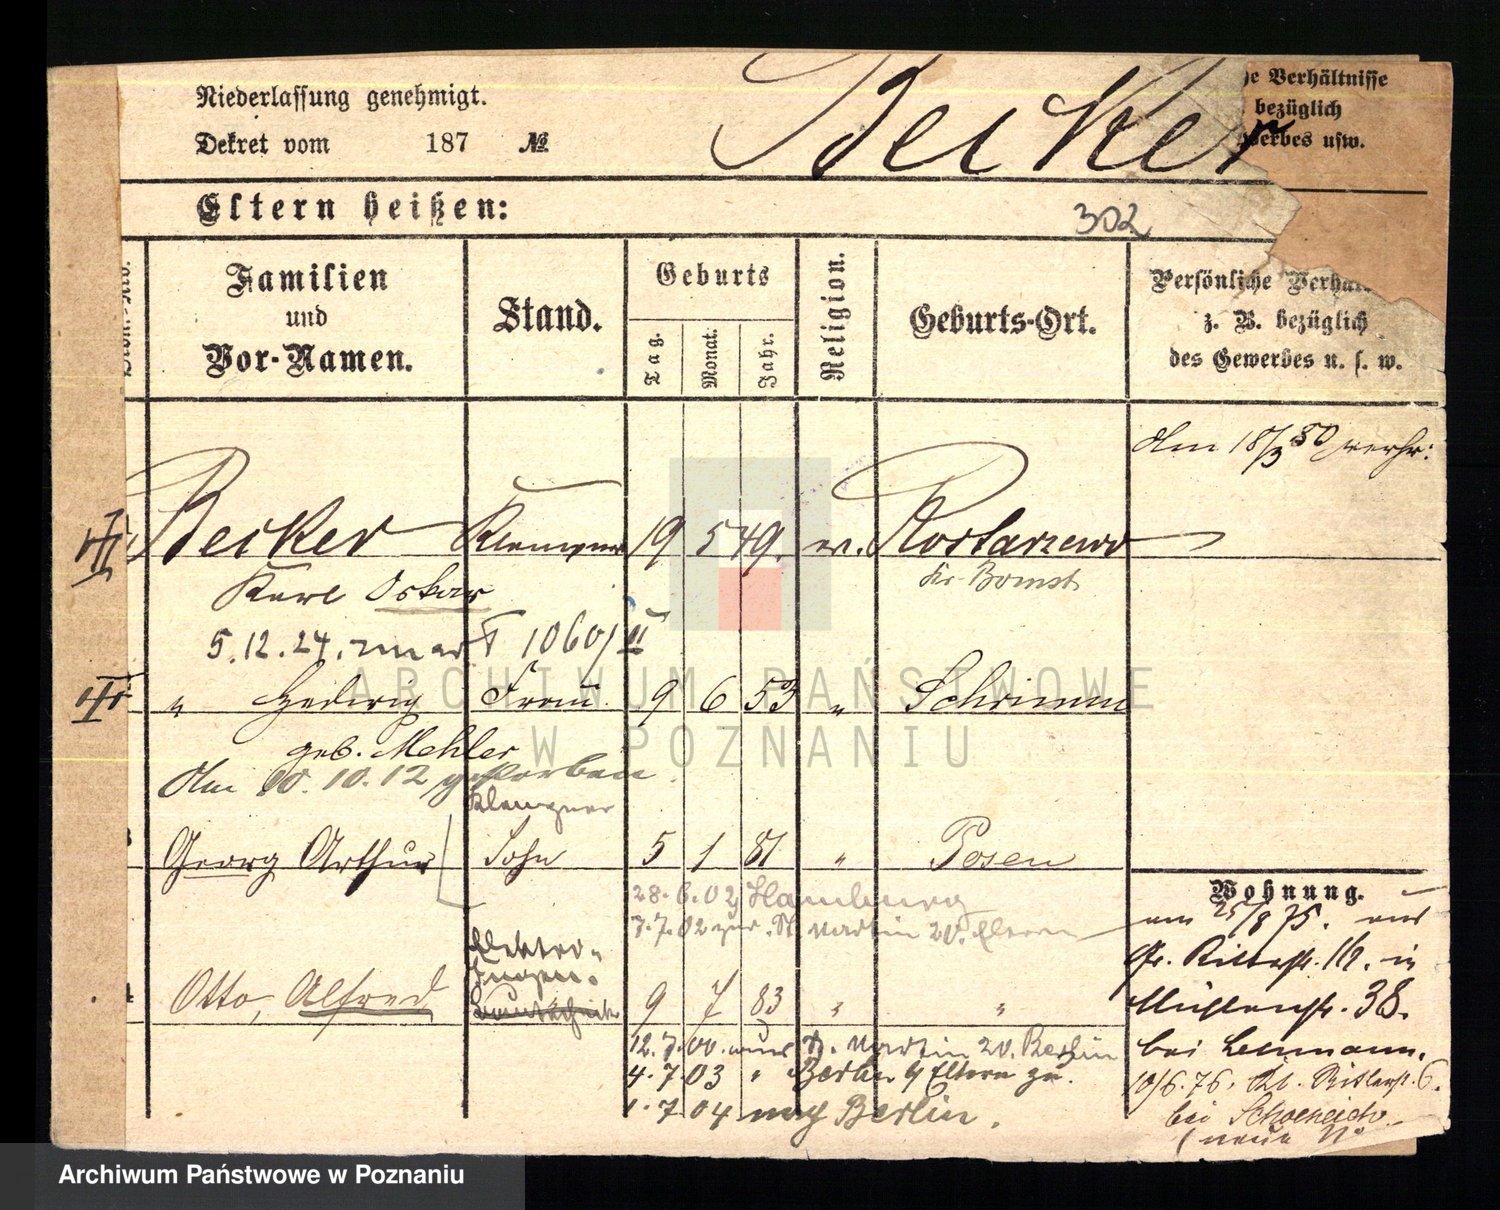 Niederlassung genehmigt.
Dekret vom 187 №
Becker
he Verhältnisse
bezüglich
Gewerbes usw.
Eltern heißen:
302
Familien
und
Vor-Namen.
Stand.
Geburts
Tag.
Monat.
Jahr.
Religion.
Geburts-Ort.
Persönliche Verhält
z. B. bezüglich
des Gewerbes u. s. w.
Am 18/3 80 verhr:
Becker Klempner 19 5 49. ev. Rostarzewo
Karl Oskar
Kr. Bomst
5.12.24. 1060/II
" Hedwig Frau 9 6 53 " Schrimm
geb. Mehler
Am 10.10.12 gestorben.
Klempner
Georg Arthur Sohn 5 1 81 " Posen
28.6.02 Hamburg
7.7.02 zur. St. Martin 20. Eltern
Wohnung.
am 25/8 75. aus
Gr. Ritterstr. 16. in
Mühlenstr. 38.
bei Lehmann.
10/6.76. Kl. Ritterstr. 6.
bei
(neue No
Elektro-
Ingen.
Otto, Alfred 9 7 83 " "
12.7.00. aus St. Martin 20. Berlin
4.7.03 " Berlin Eltern zu.
1.7.04 nach Berlin.
ARCHIWUM PAŃSTWOWE
W POZNANIU
Archiwum Państwowe w Poznaniu